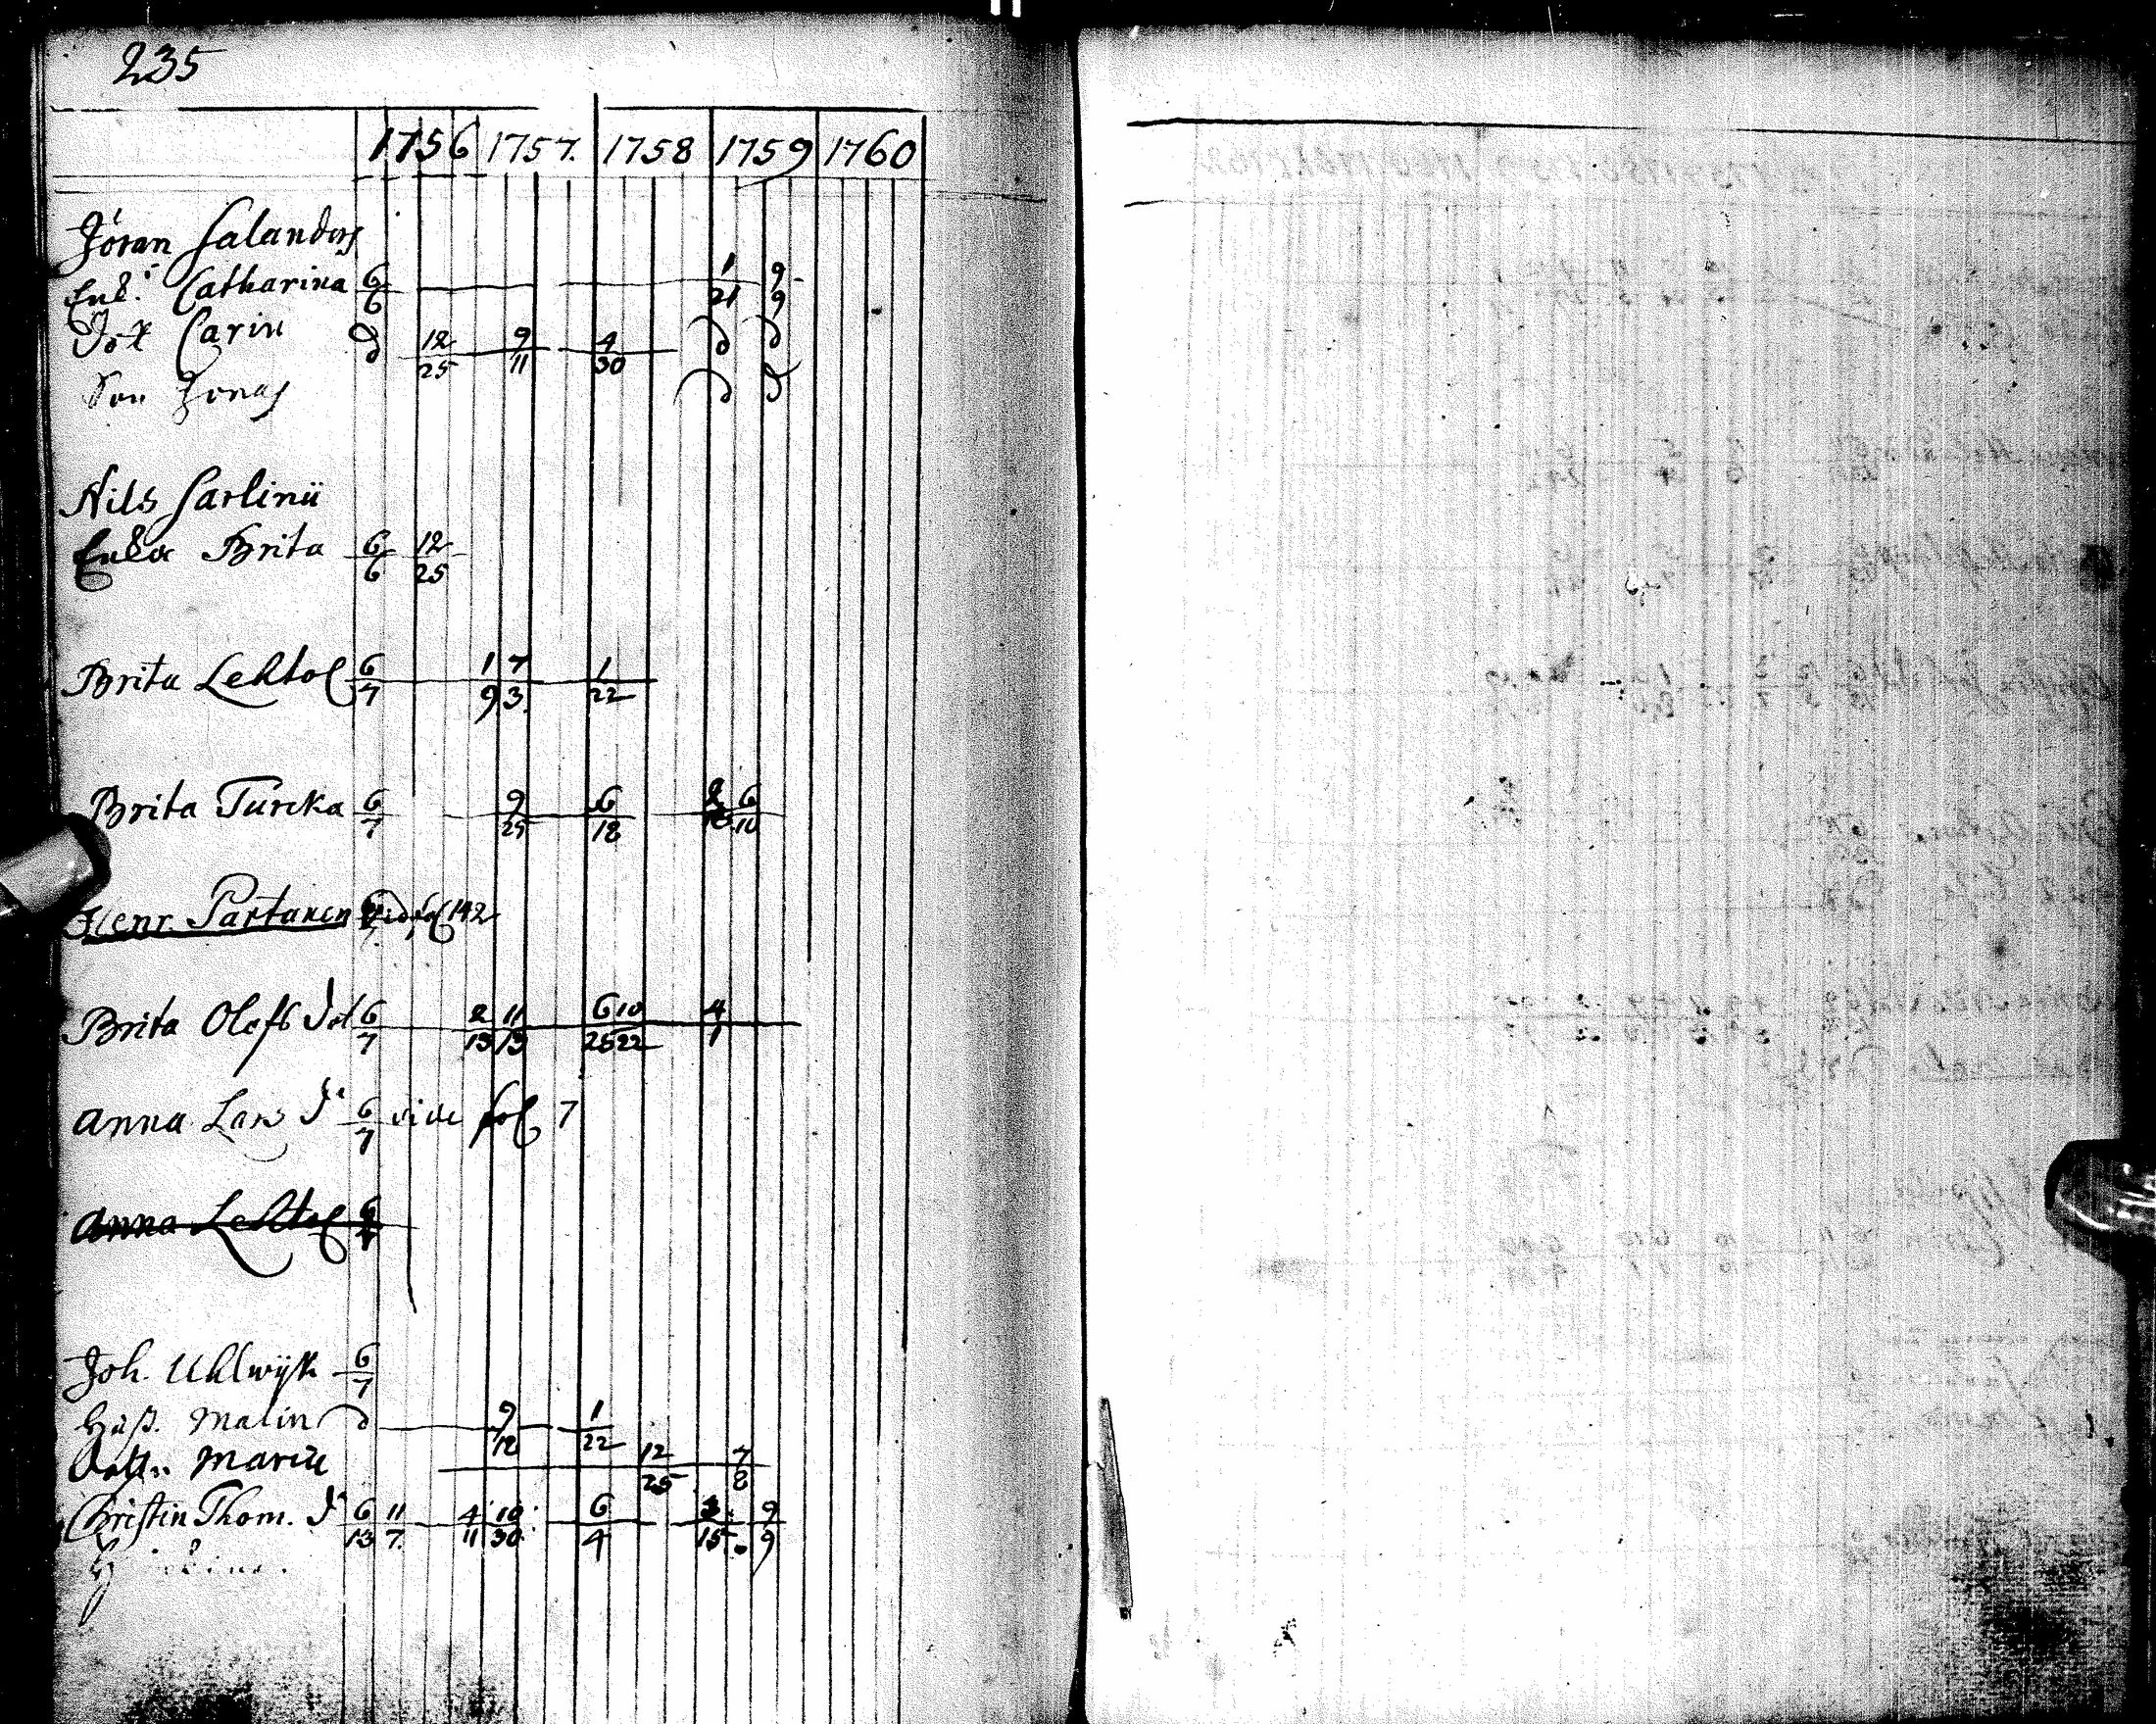 235
1756 1757. 1758 1759 1760
Jöran Salanders
Enk. Catharina 6/6 1/21 9/9
Dot Carin d 12/25 9/11 4/30 d d
Son Jonas d d
Nils Sarlinii
Enka Brita 6/6 12/25
Brita Lehtol 6/7 1/9 7/3 1/22
Brita Turcka 6/7 9/25 6/18 6/10
Henr. Partanen vid fol 142
Brita Olofs Dot 6/7 2/13 11/13 6/25 10/22 4/1
Anna Lars Dr 6/7 vide fol 7
Anna Lehtol 6/7
Joh. Uhlwijk 6/7
Hust. Malin d 9/12 1/22
Maria 12/25 7/8
Christin Thom. Dr 6/13 11/7 4/11 10/30 6/4 3/15 9/9